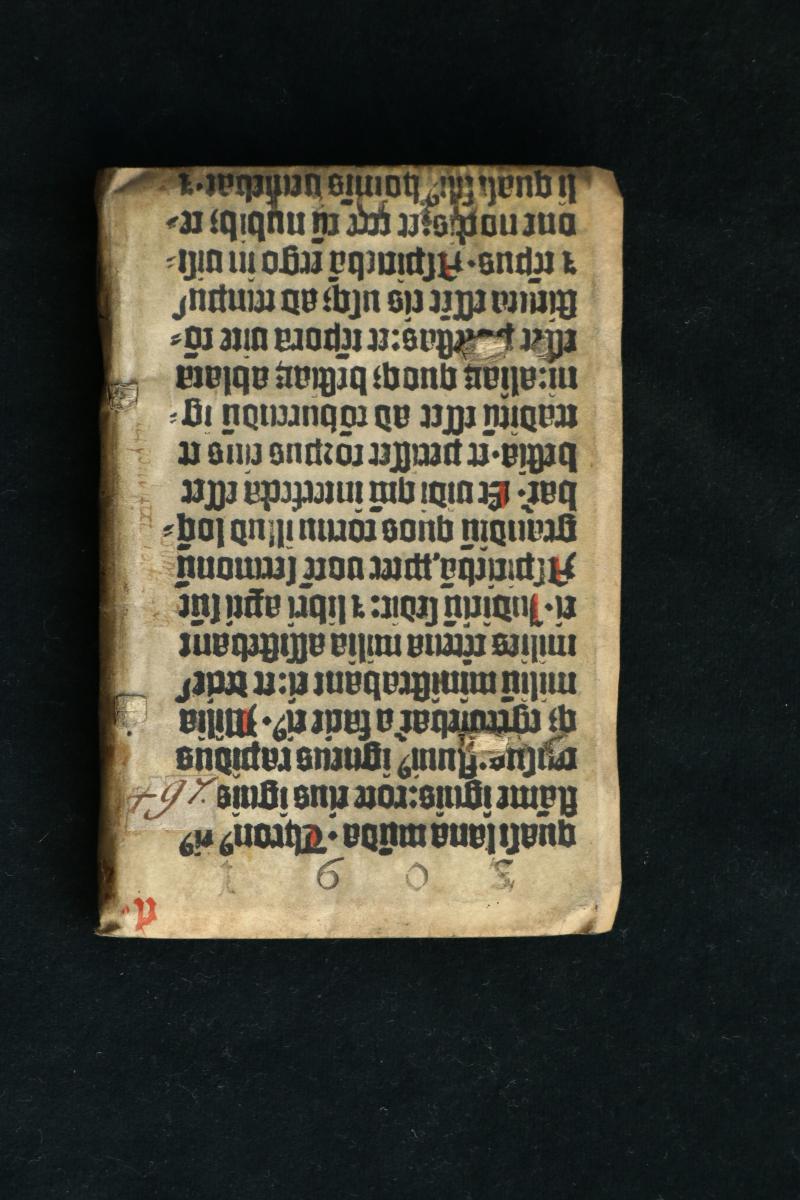 quasi lana mūda. Thronꝰ eiꝰ
flāme ignis: rote eius ignis
fluuiꝰ igneus rapidus
qꝫ egrediebat̄ a facie eiꝰ. Milia
miliū ministrabant ei: et decieſ
milies cētena milia assistebant
ei. Iudiciū sedit: ⁊ libri apti sūt
Aspiciebā, ꝓpter voce sermonū
grandiū quos cornu illud loq̄-
bat̄. Et uidi qm̄ interfecta esset
bestia. et perisset corpus eius et
traditū esset ad cōburendū ig-
ni: aliaꝝ quoqꝫ bestiaꝝ ablata
esset potestas: et tēpora uite cō-
stituta essēt eis usqꝫ ad tempuſ
⁊ tēpus. Aspiciebā ergo in uisi-
one noctis: et ecce cū nubibꝫ ce-
li quasi filiꝰ homīnis veniebat. ⁊
+97.
1603